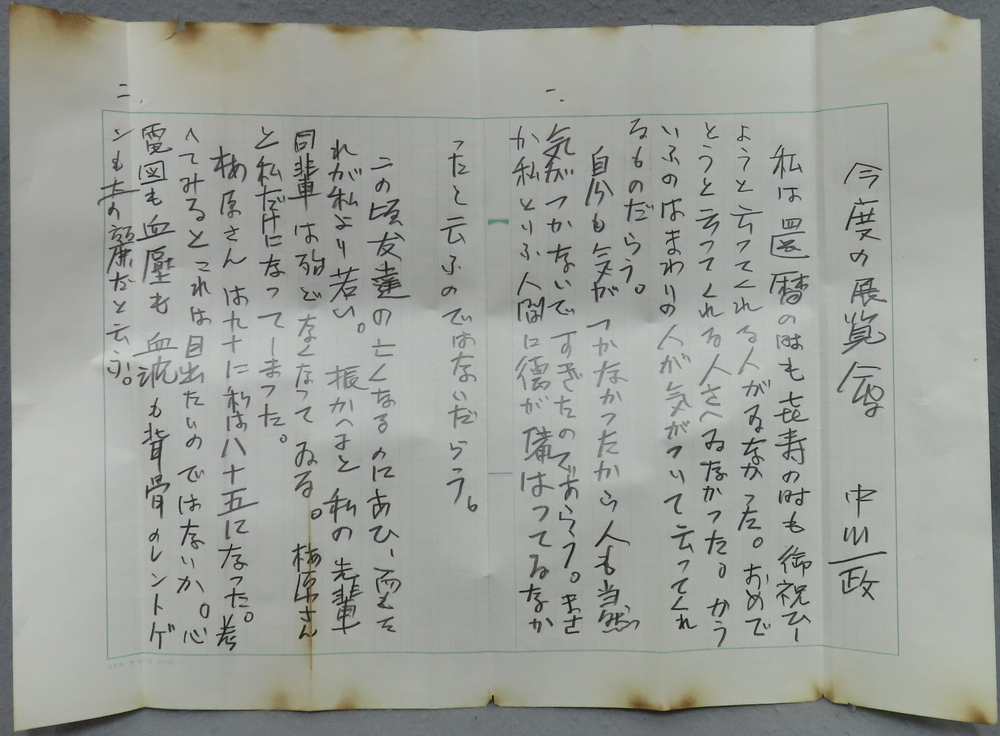 今度の展覧会　中川一政
一、
私は還暦の時も㐂寿の時も御祝ひし
ようと云ってくれる人がゐなかった。おめで
とうと云ってくれる人さへゐなかった。かう
いふのはまわりの人が気がついて云ってくれ
るものだらう。
自分も気がつかなかったから人も当然
気がつかないですぎたのであらう。まさ
か私といふ人間に徳が備はってゐなか
ったと云ふのではないだらう。
二、
この頃友達の亡くなるのにあひ、而もそ
れが私より若い。振かへると私の先輩
同輩は殆どなくなってゐる。梅原さん
と私だけになってしまった。
梅原さんは九十に私は八十五になった。考
へてみるとこれは目出たいのではないか。心
電図も血壓も血沈も背骨のレントゲ
ンも奇麗だと云う。